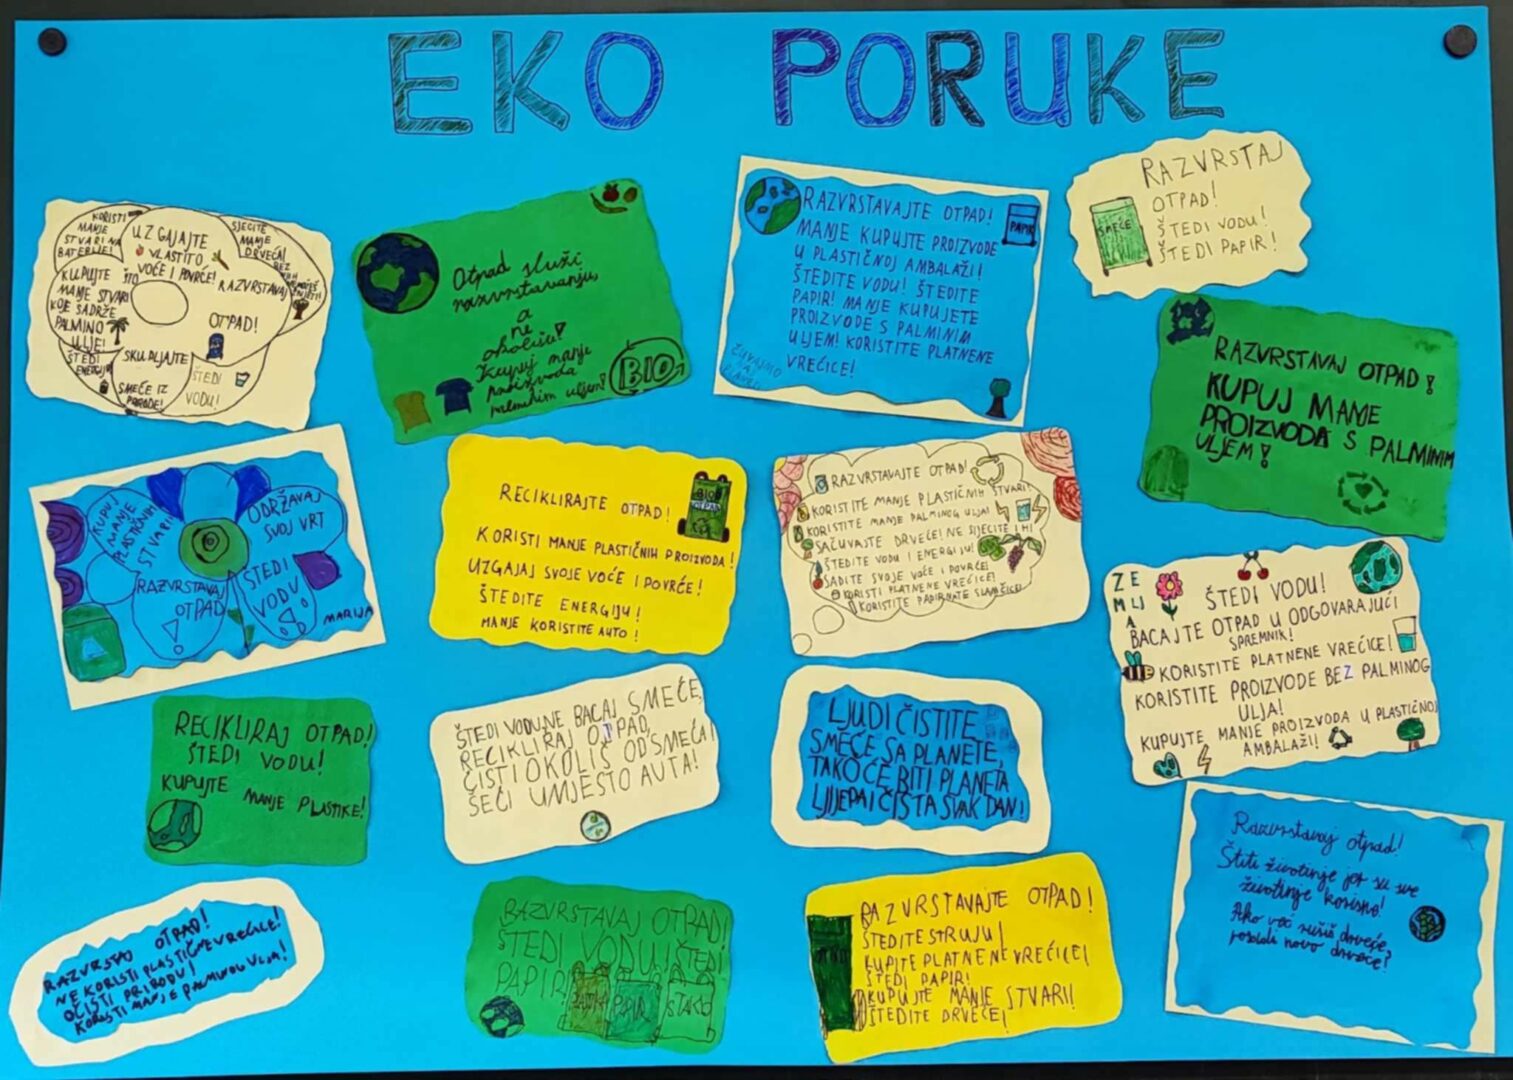 EKO PORUKE
KORISTI
MANJE
STVARI NA
BATERIJE!
UZGAJAJTE
VLASTITO
VOĆE I POVRĆE!
SJECITE
MANJE
DRVEĆA!
KUPUJTE ŠTO
MANJE STVARI
KOJE SADRŽE
PALMINO
ULJE!
RAZVRSTAVAJ
OTPAD!
ŠTEDI
ENERGIJU
SKUPLJAJTE
SMEĆE IZ
PRIRODE!
ŠTEDI
VODU!
Otpad služi
razvrstavanju,
a
ne
okolišu!
Kupuj manje
proizvoda
palminim uljem!
BIO
RAZVRSTAVAJTE OTPAD!
PAPIR
MANJE KUPUJTE PROIZVODE
U PLASTIČNOJ AMBALAŽI!
ŠTEDITE VODU! ŠTEDITE
PAPIR! MANJE KUPUJETE
PROIZVODE S PALMINIM
ULJEM! KORISTITE PLATNENE
VREĆICE!
RAZVRSTAJ
OTPAD!
ŠTEDI VODU!
ŠTEDI PAPIR!
SMEĆE
RAZVRSTAVAJ OTPAD!
KUPUJ MANJE
PROIZVODA S PALMINIM
ULJEM!
KUPUJ
MANJE
PLASTIČNIH
STVARI!
ODRŽAVAJ
SVOJ VRT
RAZVRSTAVAJ
OTPAD!
ŠTEDI
VODU!
MARIJA
RECIKLIRAJTE OTPAD!
BIO
OTPAD
KORISTI MANJE PLASTIČNIH PROIZVODA!
UZGAJAJ SVOJE VOĆE I POVRĆE!
ŠTEDITE ENERGIJU!
MANJE KORISTITE AUTO!
RAZVRSTAVAJTE OTPAD!
KORISTITE MANJE PLASTIČNIH STVARI!
KORISTITE MANJE PALMINOG ULJA!
SAČUVAJTE DRVEĆE! NE SIJECITE IH!
ŠTEDITE VODU I ENERGIJU!
SADITE SVOJE VOĆE I POVRĆE!
KORISTI PLATNENE VREĆICE!
KORISTITE PAPIRNATE SLAMČICE!
ZEMLJA
ŠTEDI VODU!
BACAJTE OTPAD U ODGOVARAJUĆI
SPREMNIK!
KORISTITE PLATNENE VREĆICE!
KORISTITE PROIZVODE BEZ PALMINOG
ULJA!
KUPUJTE MANJE PROIZVODA U PLASTIČNOJ
AMBALAŽI!
RECIKLIRAJ OTPAD!
ŠTEDI VODU!
KUPUJTE MANJE PLASTIKE!
ŠTEDI VODU,NE BACAJ SMEĆE,
RECIKLIRAJ OTPAD,
ČISTI OKOLIŠ OD SMEĆA I
ŠEĆI UMJESTO AUTA!
LJUDI ČISTITE
SMEĆE SA PLANETE,
TAKO ĆE BITI PLANETA
LJIJEPA I ČISTA SVAK DAN!
Razvrstavaj otpad!
Štiti životinje jer su sve
životinje korisne!
Ako već rušiš drveće,
posadi novo drveće!
RAZVRSTO OTPAD!
NE KORISTI PLASTIČNE VREĆICE!
OČISTI PRIRODU!
KORISTI MANJE PALMINOG ULJA!
RAZVRSTAVAJ OTPAD!
ŠTEDI VODU I ŠTEDI
PAPIR!
PAPIR
STAKLO
RAZVRSTAVAJTE OTPAD!
ŠTEDITE STRUJU!
KUPITE PLATNENE VREĆICE!
ŠTEDI PAPIR!
KUPUJTE MANJE STVARI!
ŠTEDITE DRVEĆE!